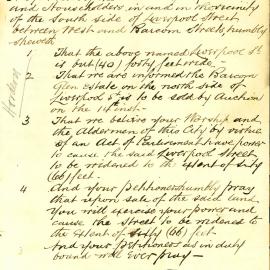 and Householders, in and in the vicinity
of the South side of Liverpool Street
between West and Barcom Streets, humbly
sheweth
1 That the above named Liverpool St
is but (40) forty feet wide –
2 That we are informed the Barcom
Glen estate on the north side of
Liverpool St is to be sold by Auction
on the 14th inst –
3 That we believe your Worship and
the Aldermen of this City by virtue
of an Act of Parliament have power
to cause the said Liverpool Street
to be widened to the extent of sixty
(66) feet –
4 And your Petitioners humbly pray
that upon sale of the said land
You will exercise your power and
cause the street to be widened to
the extent of sixty (66) feet
And your Petitioners as in duty
bound will ever pray –